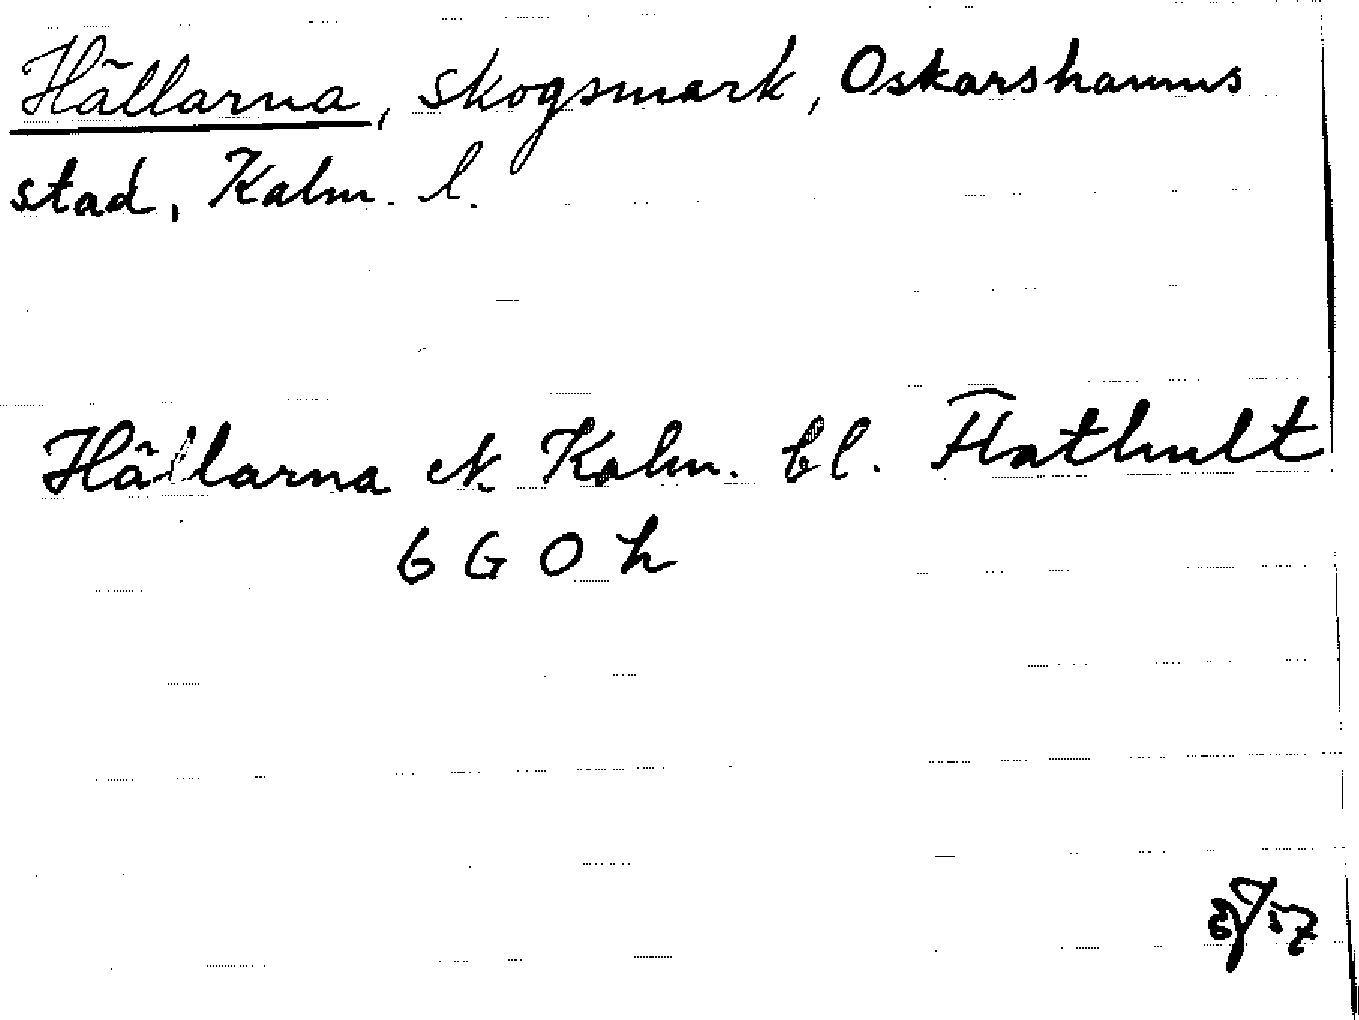 Hällarna, skogsmark, Oskarshamns
stad, Kalm. l.
Hällarna ek Kalm. bl. Flathult
6 G O h